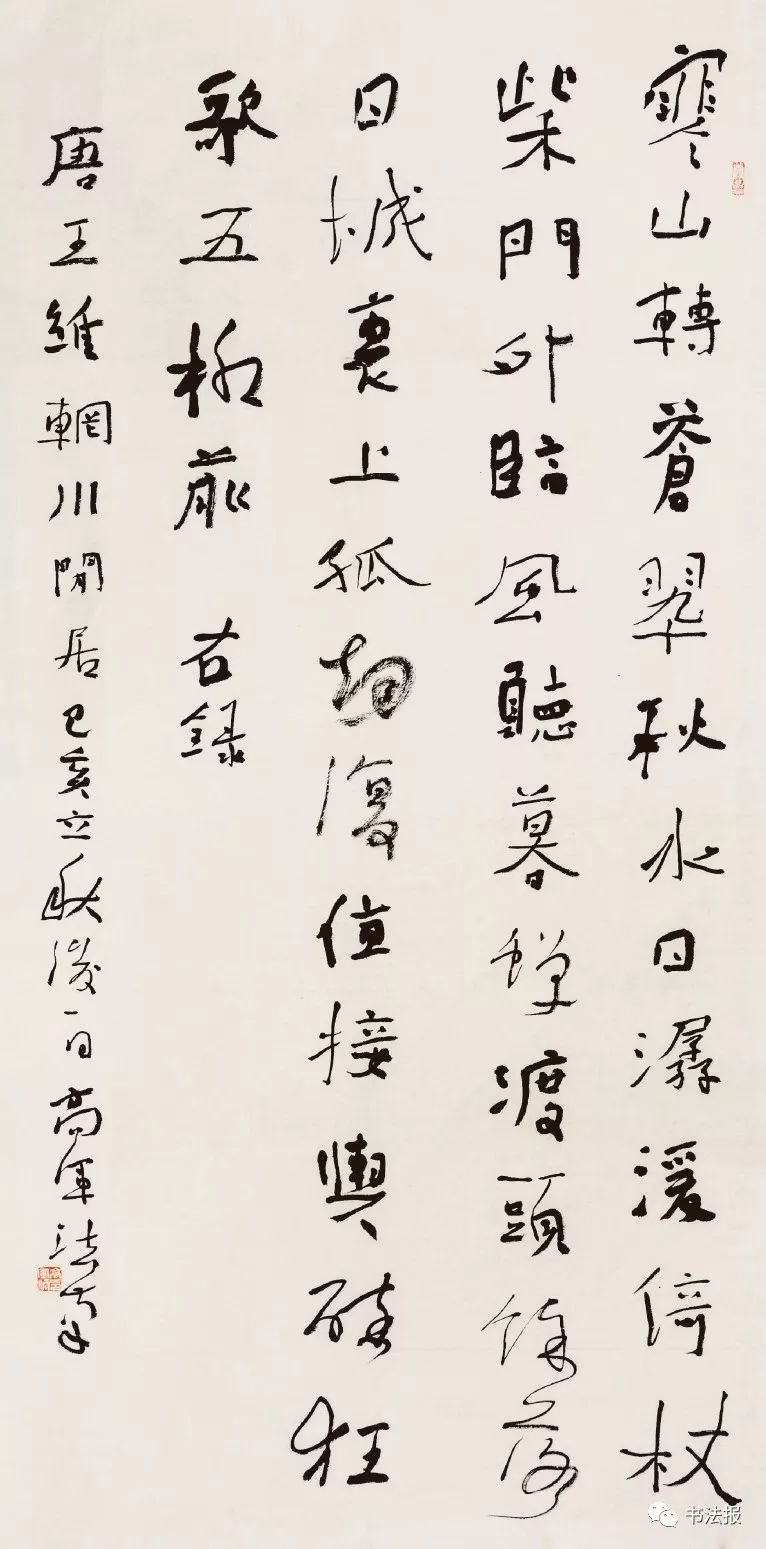 寒山轉蒼翠秋水日潺湲倚杖
柴門外臨風聽暮蟬渡頭餘落
日城裏上孤烟復值接輿醉狂
歌五柳前 右錄
唐王維輞川閒居己亥立秋後一日高軍法
书法报